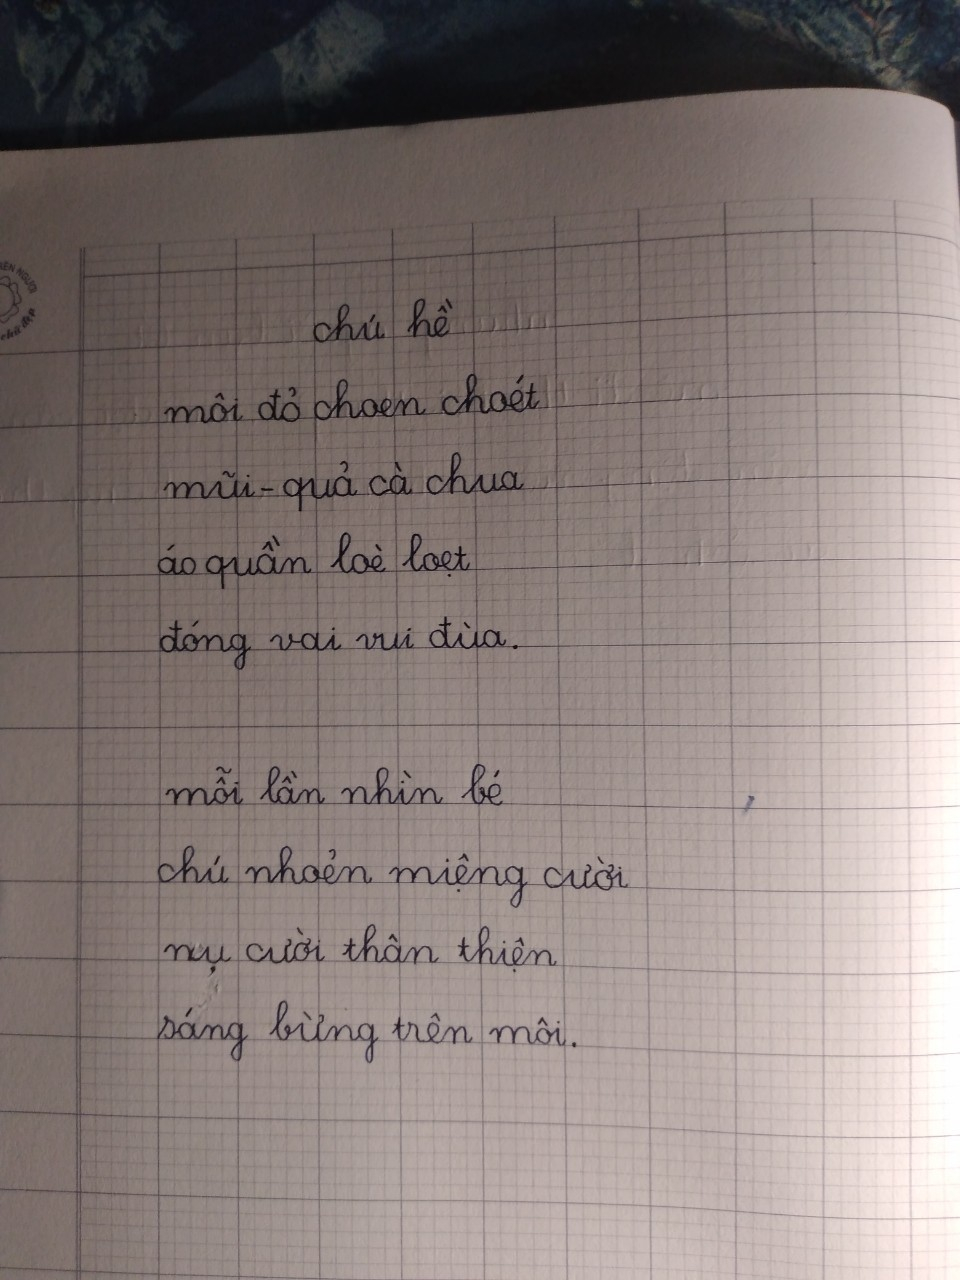 chú hề
môi đỏ choen choét
mũi-quả cà chua
áo quần loè loẹt
đóng vai vui đùa.
mỗi lần nhìn bé
chú nhoẻn miệng cười
nụ cười thân thiện
sáng bừng trên môi.